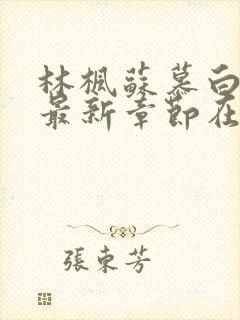 林楓蘇慕白
最新章節在
張東芳